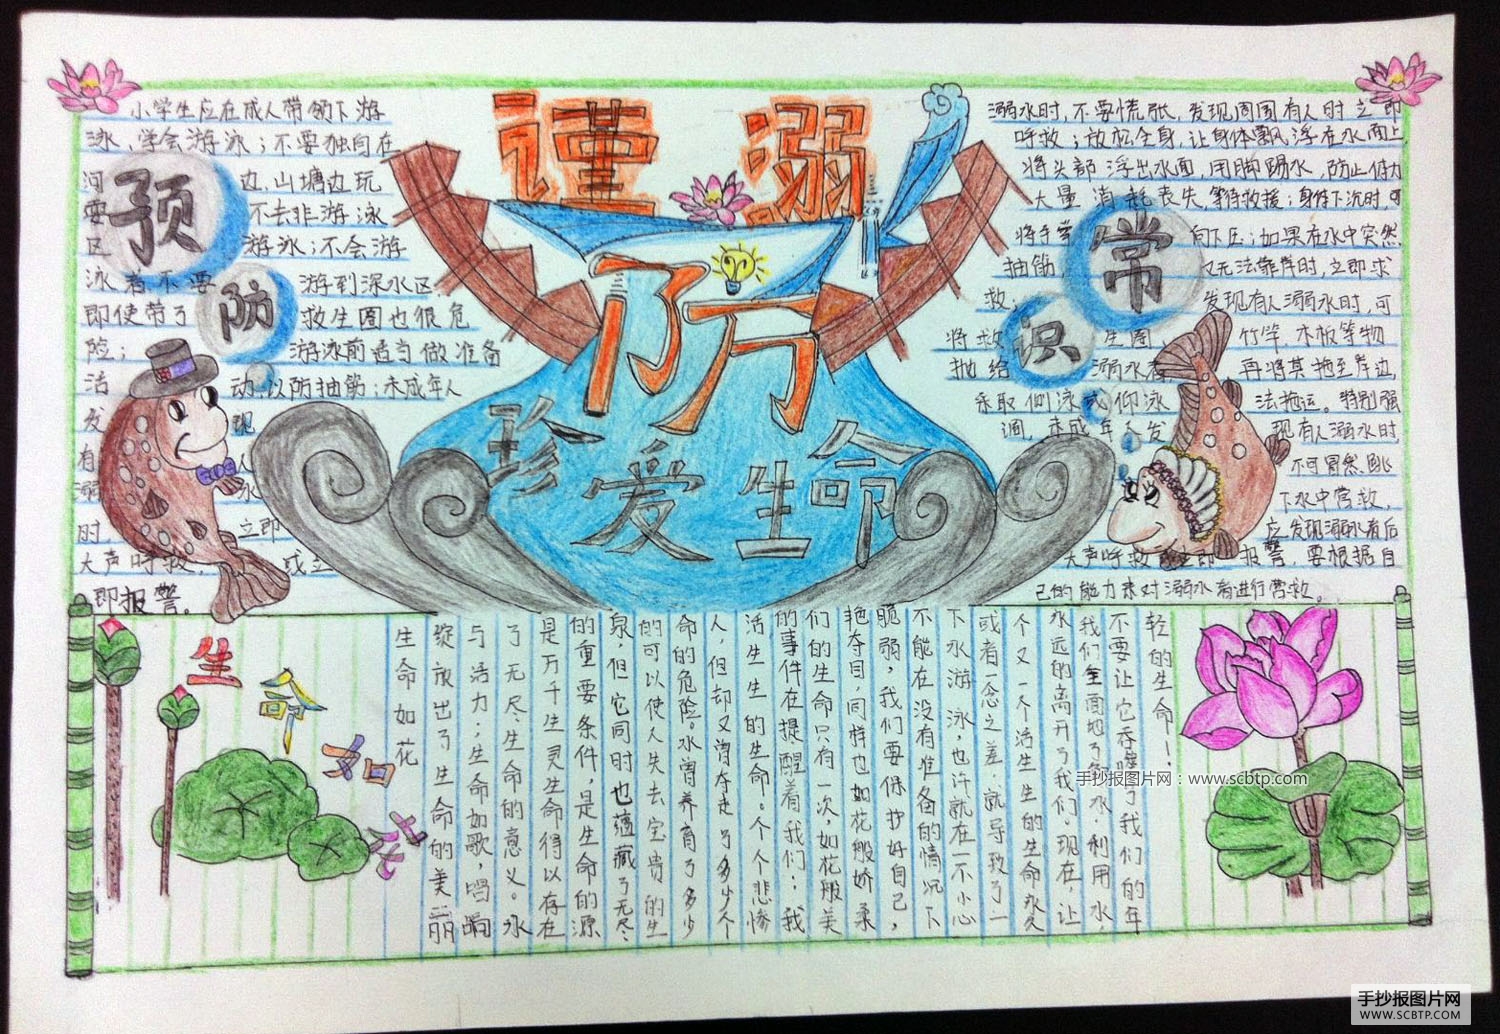 谨防溺
珍爱生命
预防
小学生应在成人带领下游
泳、学会游泳；不要独自在
河边、山塘边玩
耍不去非游泳
区游泳；不会游
泳者不要游到深水区，
即使带了救生圈也很危
险；游泳前适当做准备
活动，以防抽筋；未成年人
发现
有人
溺水
时，立即
大声呼救，或立
即报警。
常识
溺水时，不要慌张，发现周围有人时立即
呼救；放松全身，让身体飘浮在水面上，
将头部浮出水面，用脚踢水，防止体力
大量消耗丧失，等待救援；身体下沉时，可
将手掌向下压；如果在水中突然
抽筋，又无法靠岸时，立即求
救；发现有人溺水时，可
将救生圈、竹竿、木板等物
抛给溺水者，再将其拖至岸边
采取侧泳或仰泳法拖运。特别强
调，未成年人发现有人溺水时
不可冒然跳
下水中营救，
应发现溺水者后
大声呼救或立即报警，要根据自
己的能力来对溺水者进行营救。
生命如花
轻的生命！
不要让它吞噬了我们的年
我们全面地了解水，利用水，
永远的离开了我们，现在，让
个又一个活生生的生命永久
或者一念之差，就导致了一
下水游泳，也许就在一不小心
不能在没有准备的情况下
脆弱，我们要保护好自己，
艳夺目，同样也如花般娇柔
们的生命只有一次，如花般美
的事件在提醒着我们：我
活生生的生命。个个悲惨
人，但却又曾夺走了多少个
命的危险水曾养育了多少
的可以使人失去宝贵的生
泉，但它同时也蕴藏了无尽
的重要条件，是生命的源
是万千生灵生命得以存在
了无尽生命的意义。水
与活力；生命如歌，唱响
绽放出了生命的美丽
生命如花
手抄报图片网：www.scbtp.com
手抄报图片网
WWW.SCBTP.COM